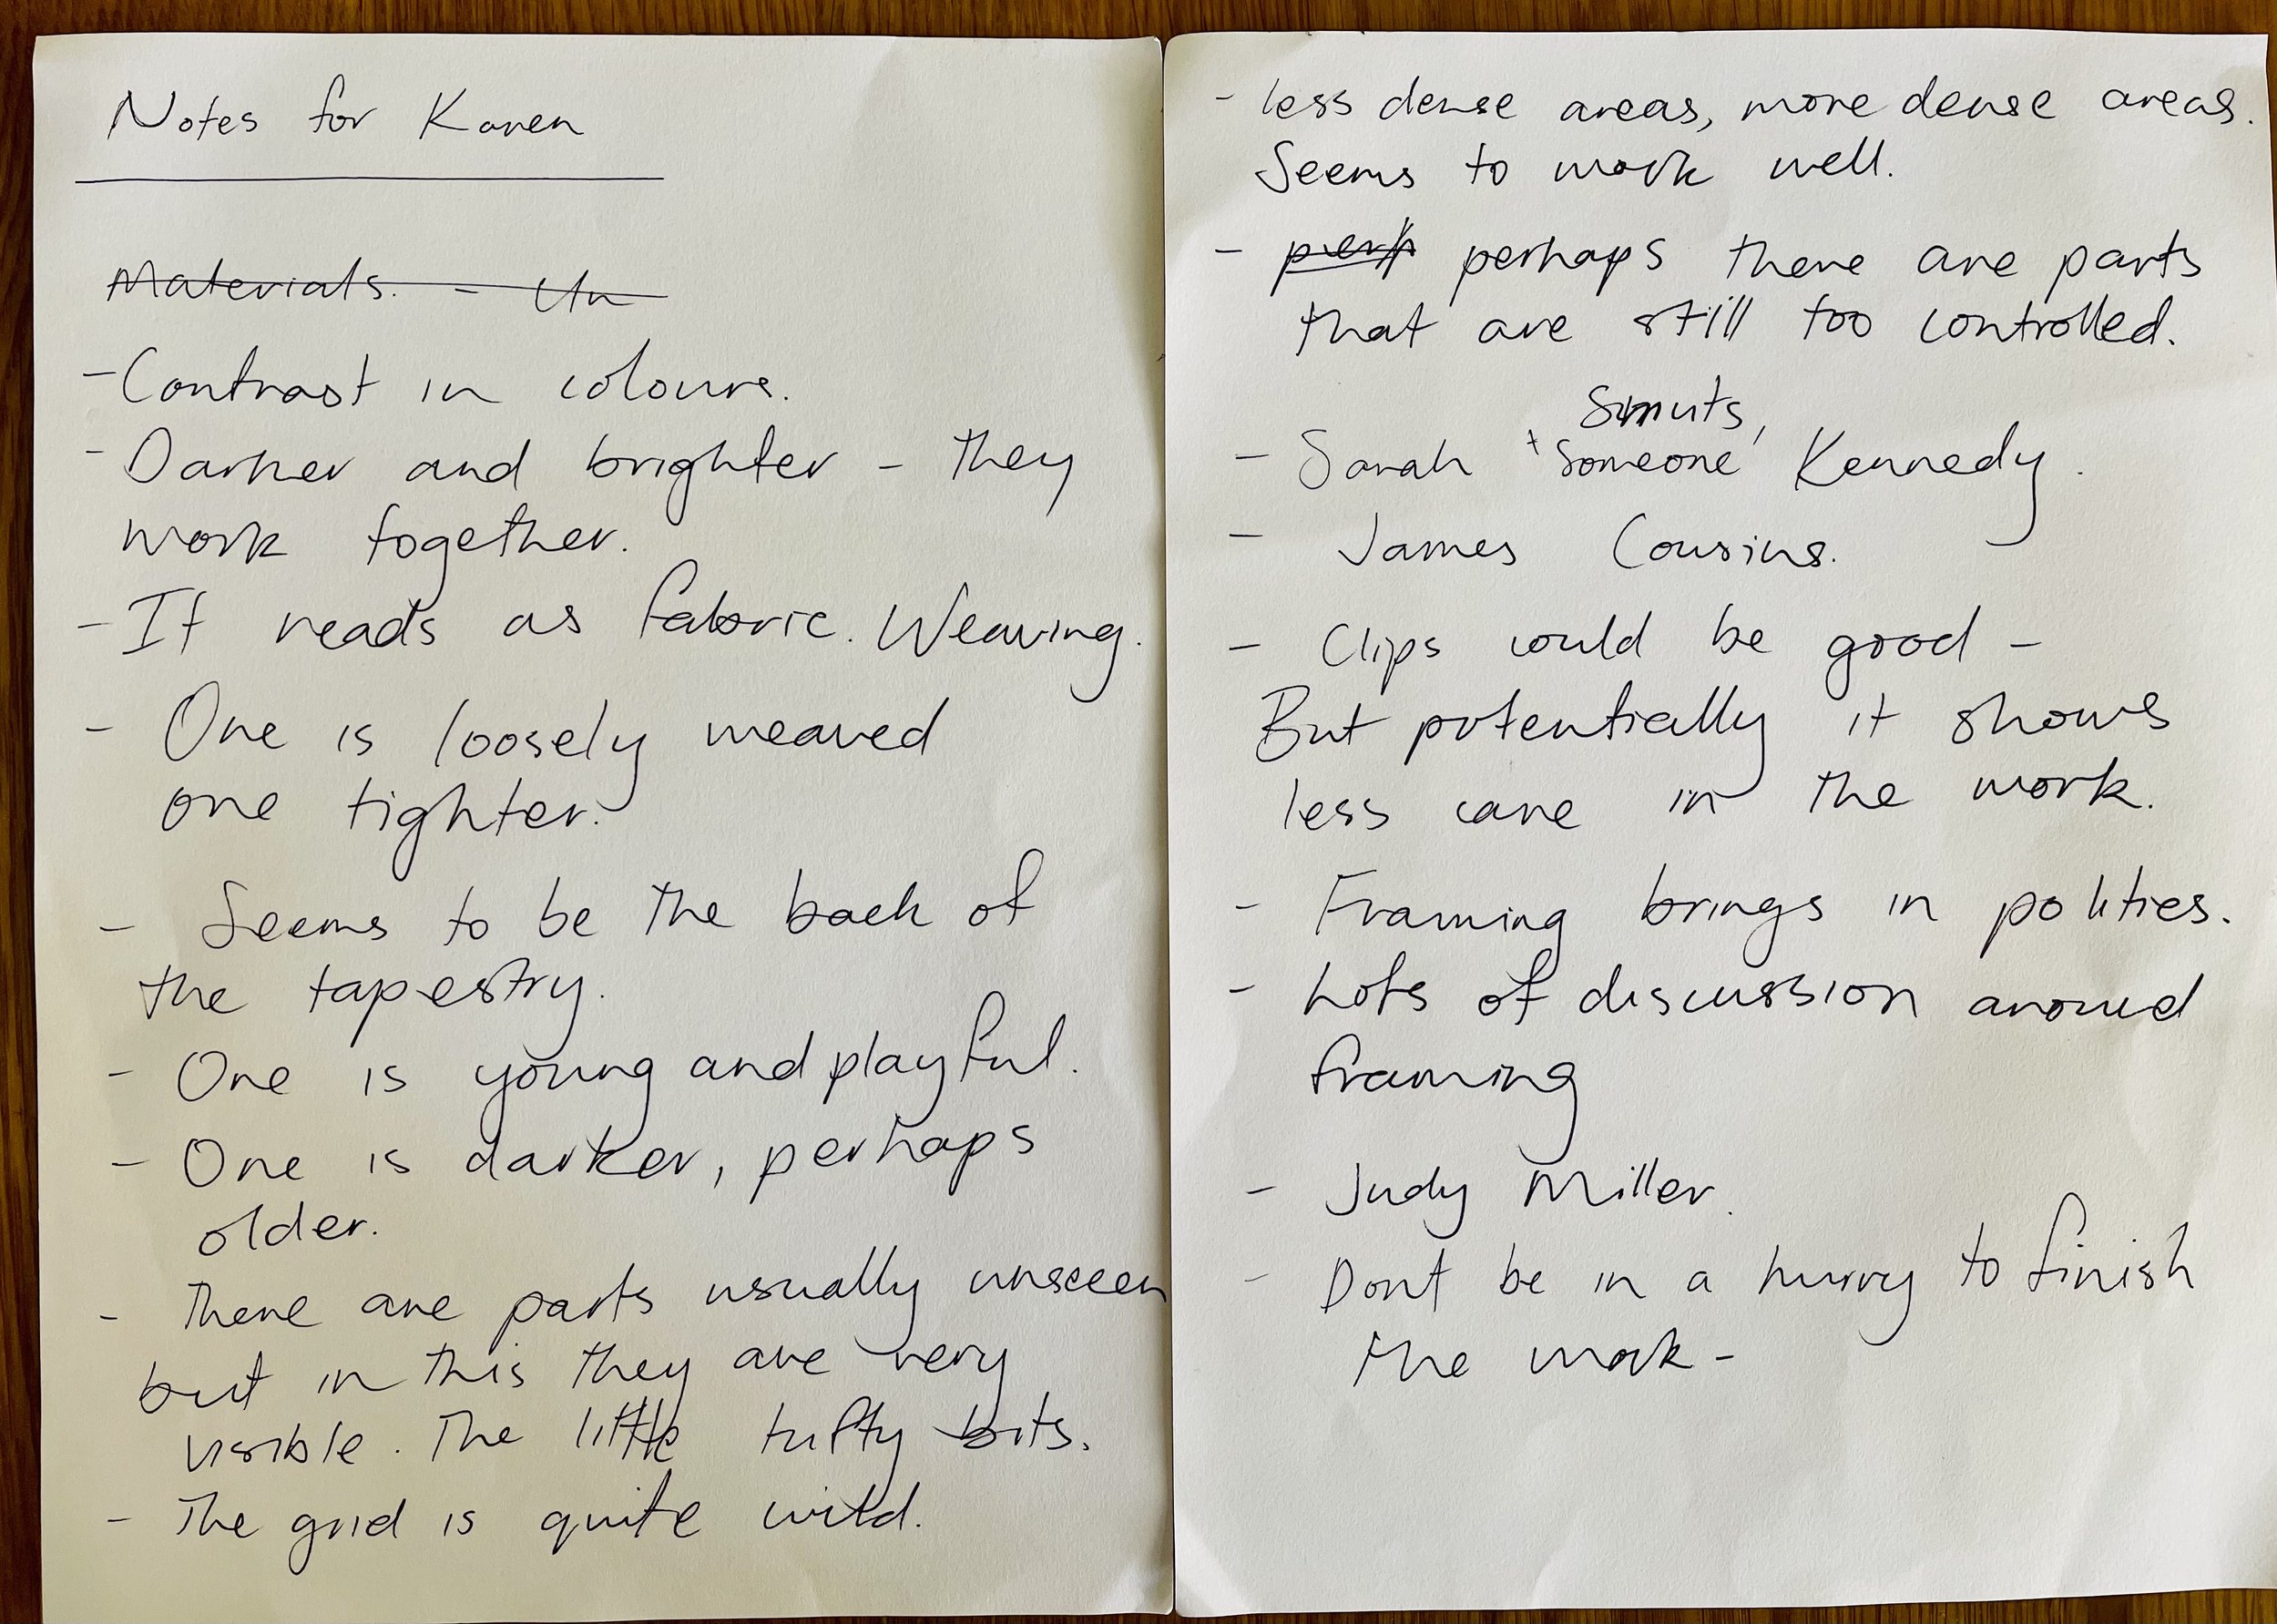 Notes for Karen
Materials. - Un
- Contrast in colours.
- Darker and brighter - they
work together.
- It reads as fabric. Weaving.
- One is loosely weaved
one tighter.
- Seems to be the back of
the tapestry.
- One is young and playful.
- One is darker, perhaps
older.
- There are parts usually unseen
but in this they are very
visible. The little tufty bits.
- The grid is quite wild.
- less dense areas, more dense areas.
Seems to work well.
- perh perhaps there are parts
that are still too controlled.
Smuts,
- Sarah 'someone' Kennedy.
- James Cousins.
- Clips would be good -
But potentially it shows
less care in the work.
- Framing brings in polities.
- Lots of discussion around
framing
- Judy Miller.
- Dont be in a hurry to finish
the work -